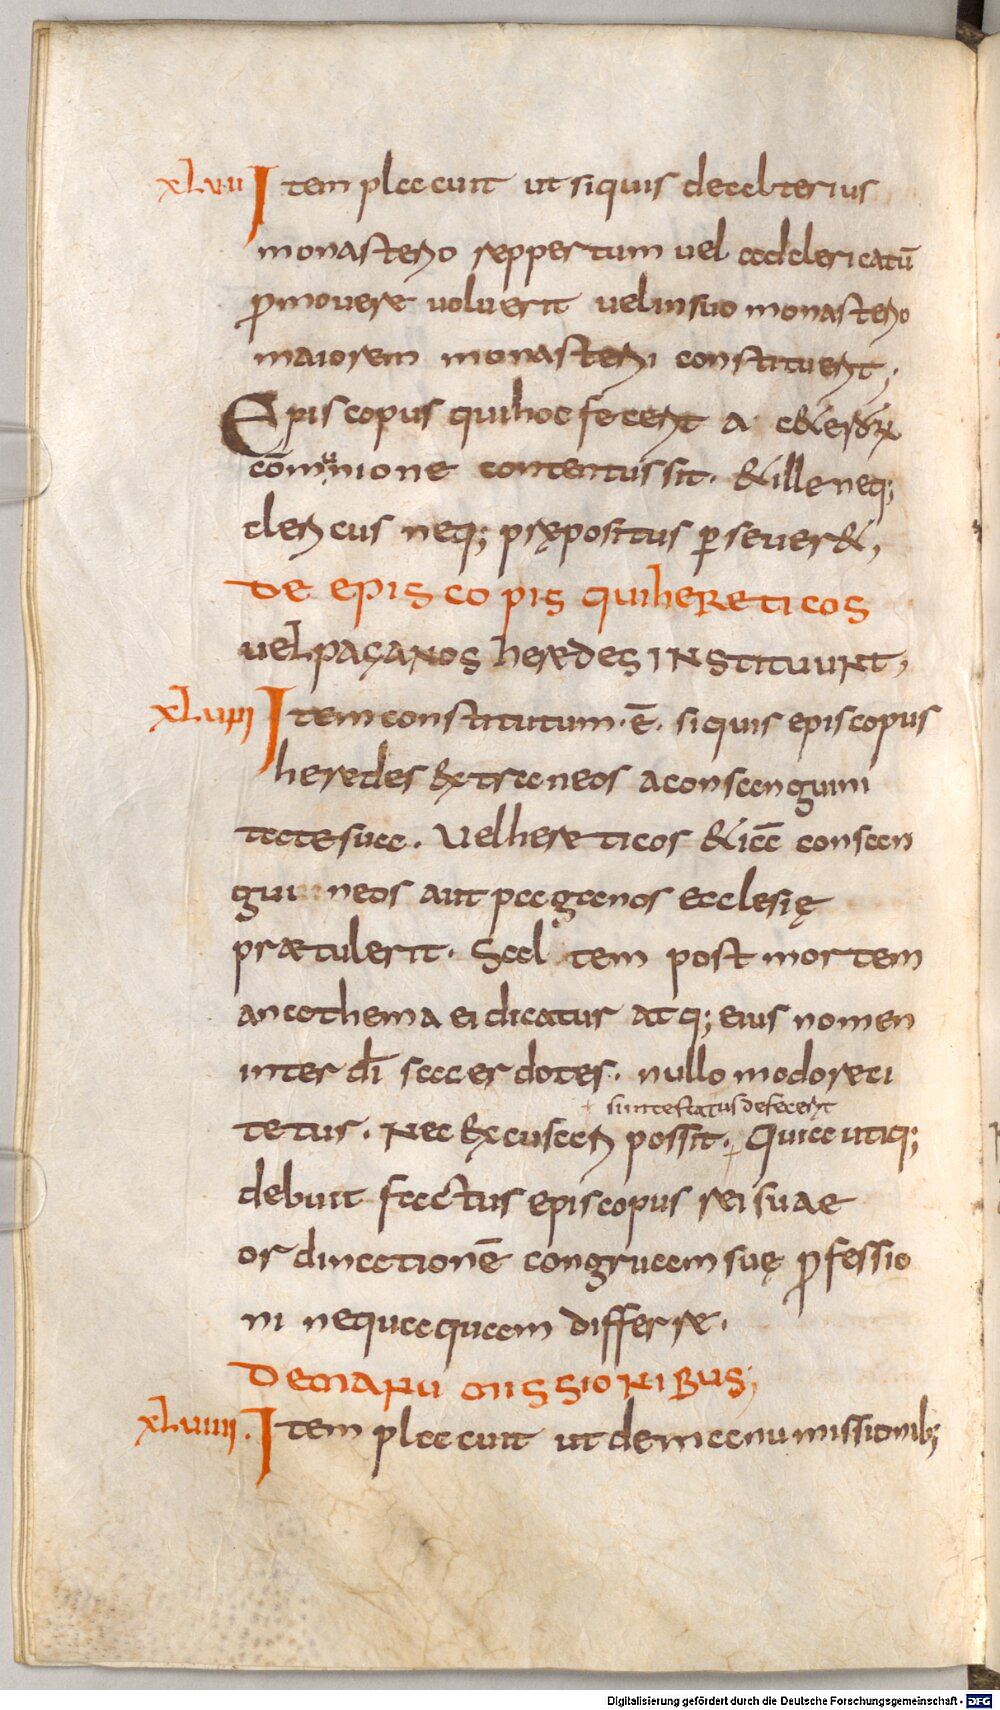 XLVII Item placuit ut siquis de alterius
monasterio reppertum vel ad clericatū
ꝓmovere voluerit vel in suo monasterio
maiorem monasterii constituerit;
Episcopus qui hoc fecerit a ceterorꝝ
cōmunione contentus sit. & ille neq;
clericus neq; prępositus ꝑsever&,
DE EPISCOPIS QUI HERETICOS
VEL PAGANOS HEREDES INSTITUUNT,
XLVIII Item constitutum .ē. si quis episcopus
heredes extraneos a consangui
tate sua. Vel hereticos &iā consan
guineos aut paganos ecclesię
prætulerit. Sal tem post mortem
anathema ei dicatur atq; eius nomen
inter dī sacerdotes. nullo modo reci
tetur. Nec excusari possit.
si intestatus defecerit
Quia utiq;
debuit factus episcopus rei suae
ordinationē congruam suę ꝓfessio
ni nequaquam differre.
DE MANUMISSIORIBUS;
XLVIIII. Item placuit ut de manumissionib;
Digitalisierung gefördert durch die Deutsche Forschungsgemeinschaft - DFG